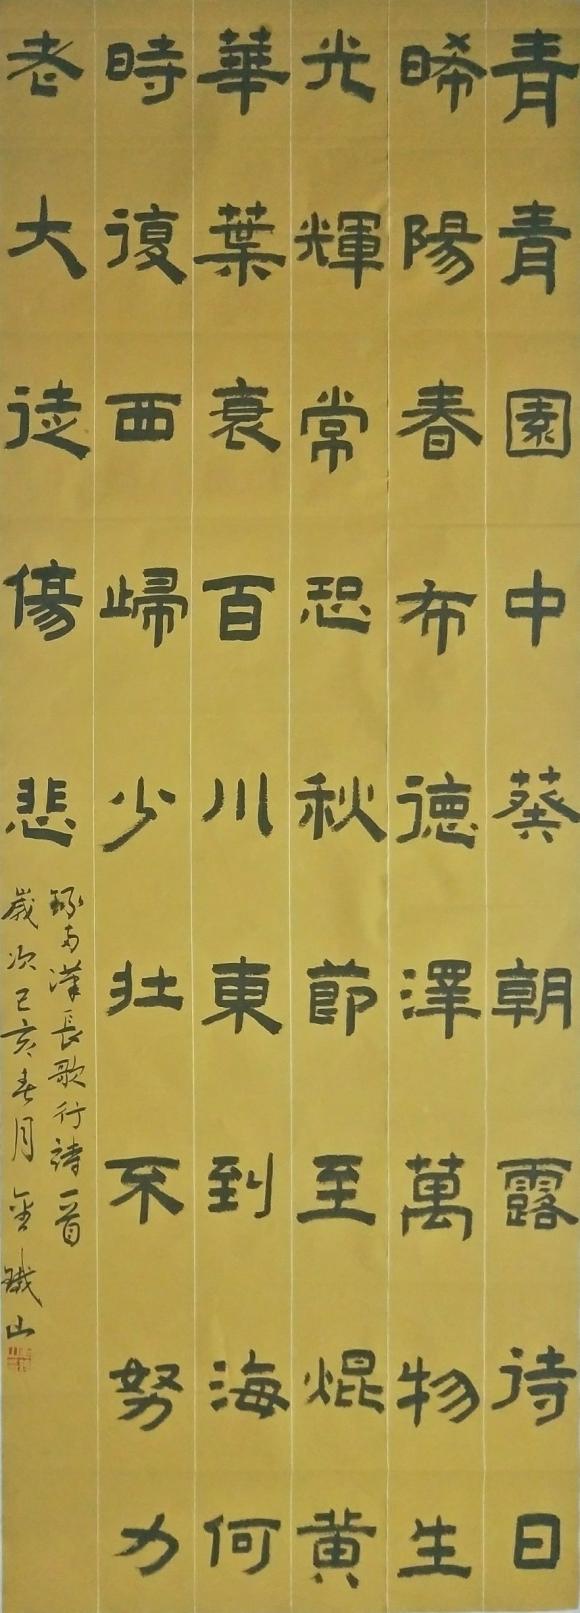 青青園中葵朝露待日
晞陽春布德澤萬物生
光輝常恐秋節至焜黃
華葉衰百川東到海何
時復西歸少壯不努力
老大徒傷悲
録漢長歌行詩一首
歲次己亥春月金鐵山